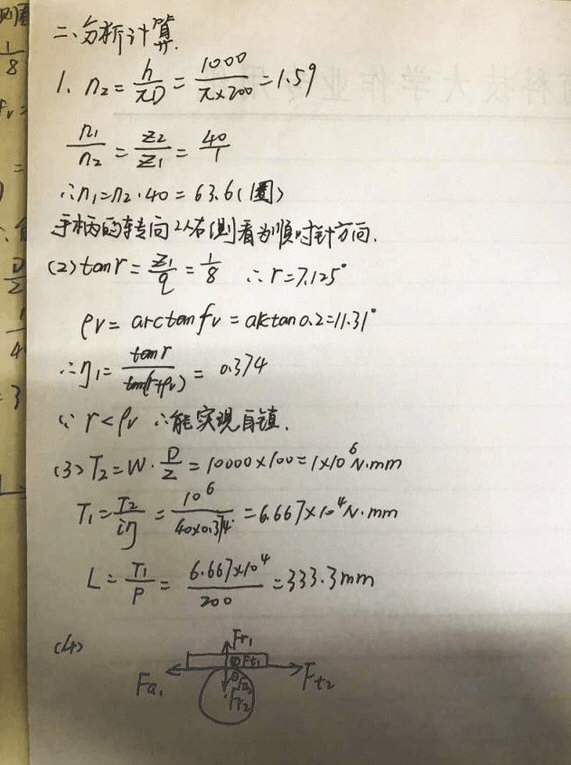 二、分析计算.
1、n₂ = h/πD = 1000/π×200 = 1.59
n₁/n₂ = Z₂/Z₁ = 40/1
∴n₁=n₂·40 = 63.6(圈)
手柄的转向从右侧看为顺时针方向.
(2) tanr = Z₁/q = 1/8 ∴r=7.125°
ρv = arctanfv = arctan0.2=11.31°
∴η₁ = tanr/tan(r+ρv) = 0.374
∵ r<ρv ∴能实现自锁.
(3) T₂ = W·D/2 = 10000×100 = 1×10⁶N·mm
T₁ = T₂/iη = 10⁶/40×0.374 = 6.667×10⁴N·mm
L = T₁/P = 6.667×10⁴/200 = 333.3mm
(4)
Fr₁
Ft₁
Fa₁
Ft₂
Fa₂
Fr₂